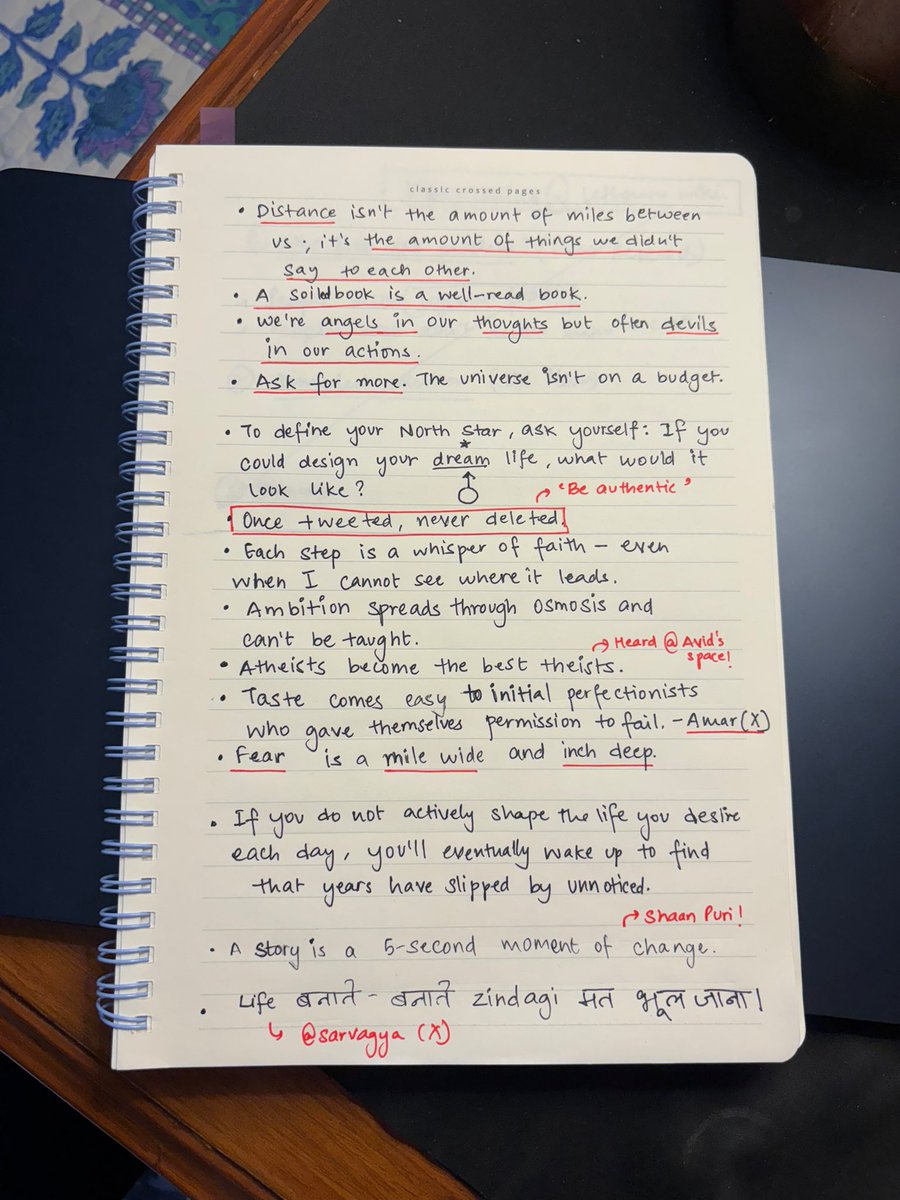 classic crossed pages
• Distance isn't the amount of miles between
us ; it's the amount of things we didn't
say to each other.
• A soiled book is a well-read book.
• We're angels in our thoughts but often devils
in our actions.
• Ask for more. The universe isn't on a budget.
• To define your North Star, ask yourself: If you
could design your dream life, what would it
look like?
→ "Be authentic"
• Once tweeted, never deleted.
• Each step is a whisper of faith – even
when I cannot see where it leads.
• Ambition spreads through osmosis and
can't be taught.
→ Heard @ Avid's
space!
• Atheists become the best theists.
• Taste comes easy to initial perfectionists
who gave themselves permission to fail. – Amar (X)
• Fear is a mile wide and inch deep.
• If you do not actively shape the life you desire
each day, you'll eventually wake up to find
that years have slipped by unnoticed.
→ Shaan Puri!
• A story is a 5-second moment of change.
• Life बनाते - बनाते zindagi मत भूल जाना।
↳ @sarvagya (X)